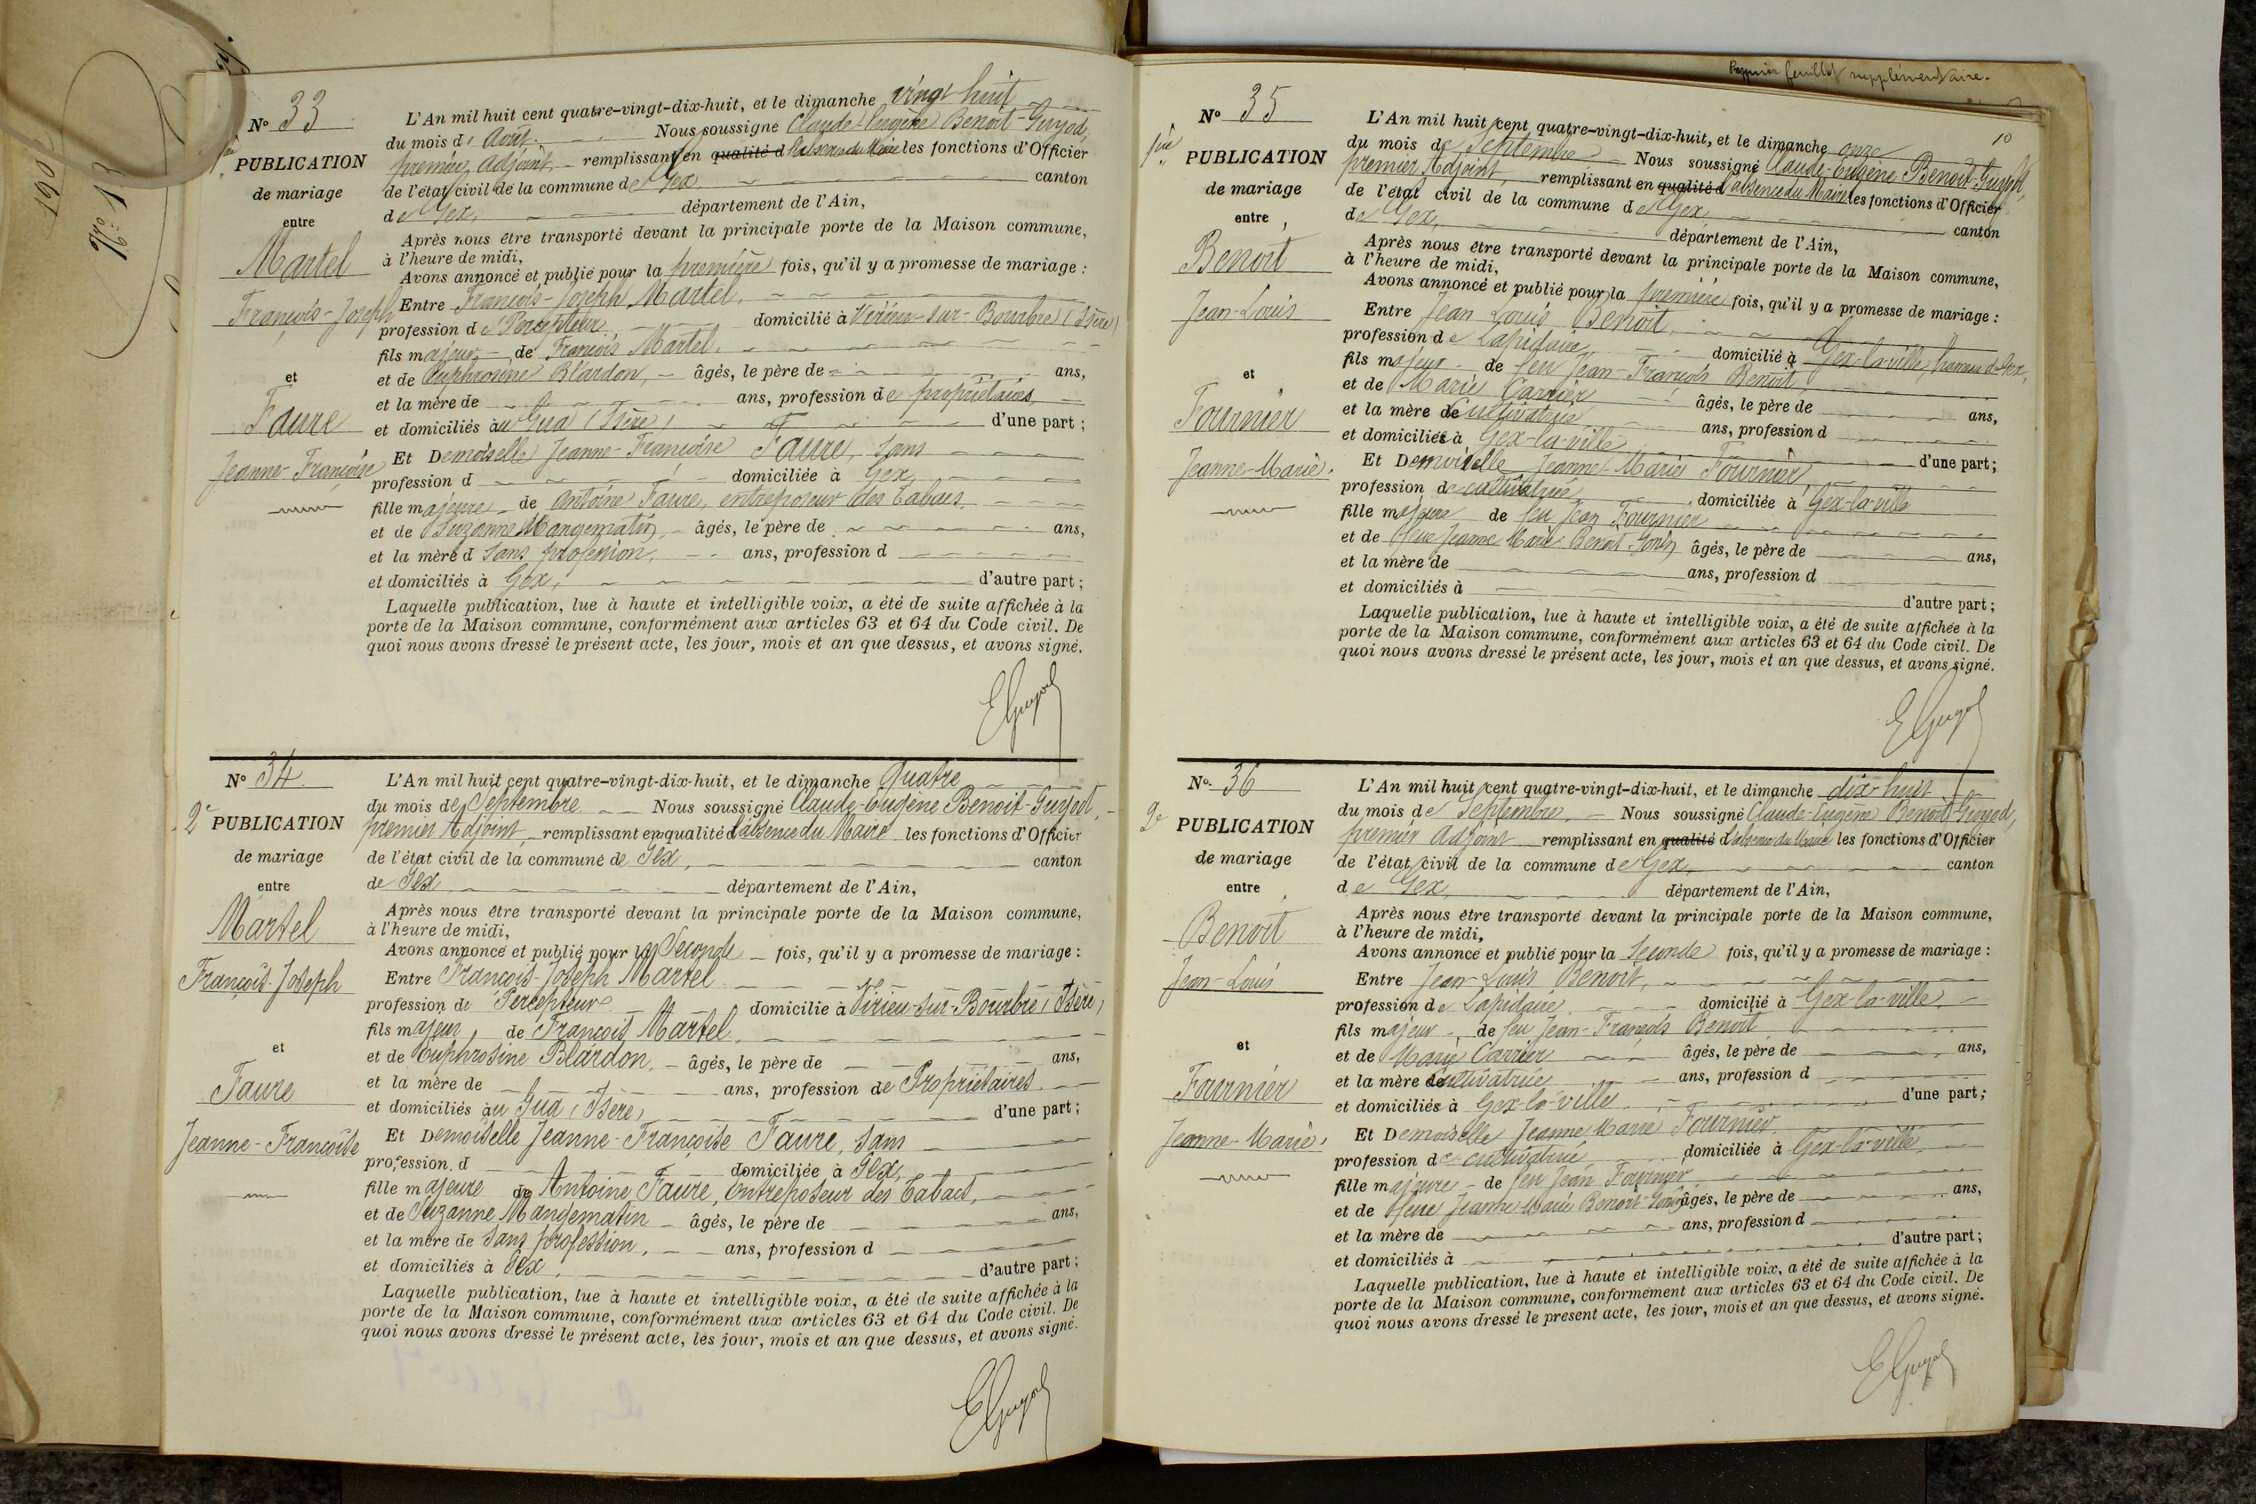 Nº 33
1ère
PUBLICATION
de mariage
entre
Martel
François-Joseph
et
Faure
Jeanne-Françoise
L'An mil huit cent quatre-vingt-dix-huit, et le dimanche vingt huit
du mois d' Août Nous soussigné Claude-Eugène Benoit-Guyod,
premier adjoint remplissant en qualité d l'absence du Maire les fonctions d'Officier
de l'état civil de la commune de Gex canton
de Gex, département de l'Ain,
Après nous être transporté devant la principale porte de la Maison commune,
à l'heure de midi,
Avons annoncé et publié pour la première fois, qu'il y a promesse de mariage :
Entre François-Joseph Martel,
profession de Percepteur domicilié à Virieu-sur-Bourbre (Isère)
fils majeur de François Martel
et de Euphrosine Blardon, âgés, le père de ans,
et la mère de ans, profession de propriétaires
et domiciliés au Gua (Isère) d'une part ;
Et Demoiselle Jeanne-Françoise Faure, sans
profession d domiciliée à Gex,
fille majeure de Antoine Faure, entreposeur des Tabacs,
et de Suzanne Mangematin, âgés, le père de ans,
et la mère d sans profession, ans, profession d
et domiciliés à Gex, d'autre part ;
Laquelle publication, lue à haute et intelligible voix, a été de suite affichée à la
porte de la Maison commune, conformément aux articles 63 et 64 du Code civil. De
quoi nous avons dressé le présent acte, les jour, mois et an que dessus, et avons signé.
EGuyod
Nº 34
2e
PUBLICATION
de mariage
entre
Martel
François-Joseph
et
Faure
Jeanne-Françoise
L'An mil huit cent quatre-vingt-dix-huit, et le dimanche Quatre
du mois de Septembre Nous soussigné Claude-Eugène Benoit-Guyod,
premier Adjoint, remplissant en qualité d l'absence du Maire les fonctions d'Officier
de l'état civil de la commune de Gex, canton
de Gex département de l'Ain,
Après nous être transporté devant la principale porte de la Maison commune,
à l'heure de midi,
Avons annoncé et publié pour la Seconde fois, qu'il y a promesse de mariage :
Entre François-Joseph Martel
profession de Percepteur domicilié à Virieu-sur-Bourbre (Isère)
fils majeur, de François Martel,
et de Euphrosine Blardon, âgés, le père de ans,
et la mère de ans, profession de Propriétaires
et domiciliés au Gua (Isère) d'une part ;
Et Demoiselle Jeanne-Françoise Faure, sans
profession d domiciliée à Gex,
fille majeure de Antoine Faure, Entreposeur des Tabacs,
et de Suzanne Mangematin âgés, le père de ans,
et la mère de sans profession, ans, profession d
et domiciliés à Gex, d'autre part ;
Laquelle publication, lue à haute et intelligible voix, a été de suite affichée à la
porte de la Maison commune, conformément aux articles 63 et 64 du Code civil. De
quoi nous avons dressé le présent acte, les jour, mois et an que dessus, et avons signé.
EGuyod
supplémentaire.
10
Nº 35
1ère
PUBLICATION
de mariage
entre
Benoit
Jean-Louis
et
Fournier
Jeanne-Marie.
L'An mil huit cent quatre-vingt-dix-huit, et le dimanche onze
du mois de Septembre Nous soussigné Claude-Eugène Benoit-Guyod,
premier Adjoint, remplissant en qualité d l'absence du Maire les fonctions d'Officier
de l'état civil de la commune de Gex canton
de Gex, département de l'Ain,
Après nous être transporté devant la principale porte de la Maison commune,
à l'heure de midi,
Avons annoncé et publié pour la première fois, qu'il y a promesse de mariage :
Entre Jean Louis Benoit,
profession de Lapidaire domicilié à Gex-la-ville, hameau de Gex,
fils majeur de feu Jean-François Benoit
et de Marie Carrier âgés, le père de ans,
et la mère de cultivatrice ans, profession d
et domiciliés à Gex-la-ville d'une part ;
Et Demoiselle Jeanne Marie Fournier,
profession de cultivatrice domiciliée à Gex-la-ville
fille majeure de feu Jean Fournier
et de feue Jeanne Marie Benoit-Gonin âgés, le père de ans,
et la mère de ans, profession d
et domiciliés à d'autre part ;
Laquelle publication, lue à haute et intelligible voix, a été de suite affichée à la
porte de la Maison commune, conformément aux articles 63 et 64 du Code civil. De
quoi nous avons dressé le présent acte, les jour, mois et an que dessus, et avons signé.
EGuyod
Nº 36
2e
PUBLICATION
de mariage
entre
Benoit
Jean-Louis
et
Fournier
Jeanne-Marie,
L'An mil huit cent quatre-vingt-dix-huit, et le dimanche dix-huit
du mois de Septembre, Nous soussigné Claude-Eugène Benoit-Guyod,
premier adjoint remplissant en qualité d l'absence du Maire les fonctions d'Officier
de l'état civil de la commune de Gex, canton
de Gex, département de l'Ain,
Après nous être transporté devant la principale porte de la Maison commune,
à l'heure de midi,
Avons annoncé et publié pour la seconde fois, qu'il y a promesse de mariage :
Entre Jean-Louis Benoit,
profession de Lapidaire domicilié à Gex-la-ville,
fils majeur, de feu Jean-François Benoit
et de Marie Carrier âgés, le père de ans,
et la mère de cultivatrice ans, profession d
et domiciliés à Gex-la-ville d'une part ;
Et Demoiselle Jeanne Marie Fournier
profession de cultivatrice domiciliée à Gex-la-ville
fille majeure de feu Jean Fournier
et de feue Jeanne Marie Benoit-Gonin âgés, le père de ans,
et la mère de ans, profession d
et domiciliés à d'autre part ;
Laquelle publication, lue à haute et intelligible voix, a été de suite affichée à la
porte de la Maison commune, conformément aux articles 63 et 64 du Code civil. De
quoi nous avons dressé le présent acte, les jour, mois et an que dessus, et avons signé.
EGuyod